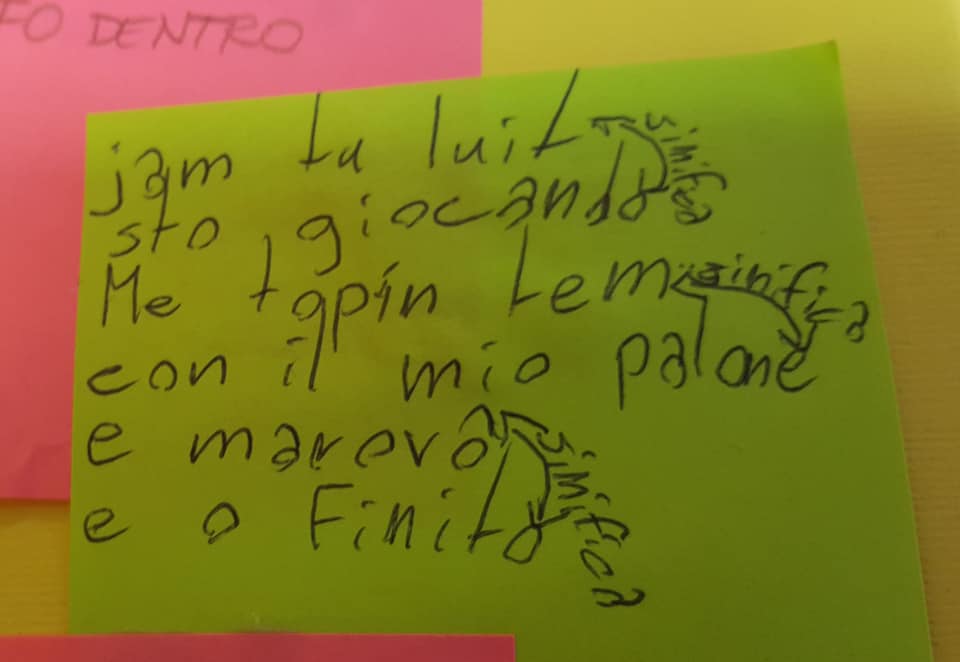 FO DENTRO
jam tu luit sinifica
sto giocando
Me topin tem sinifica
con il mio palone
e marovâ sinifica
e o Finito